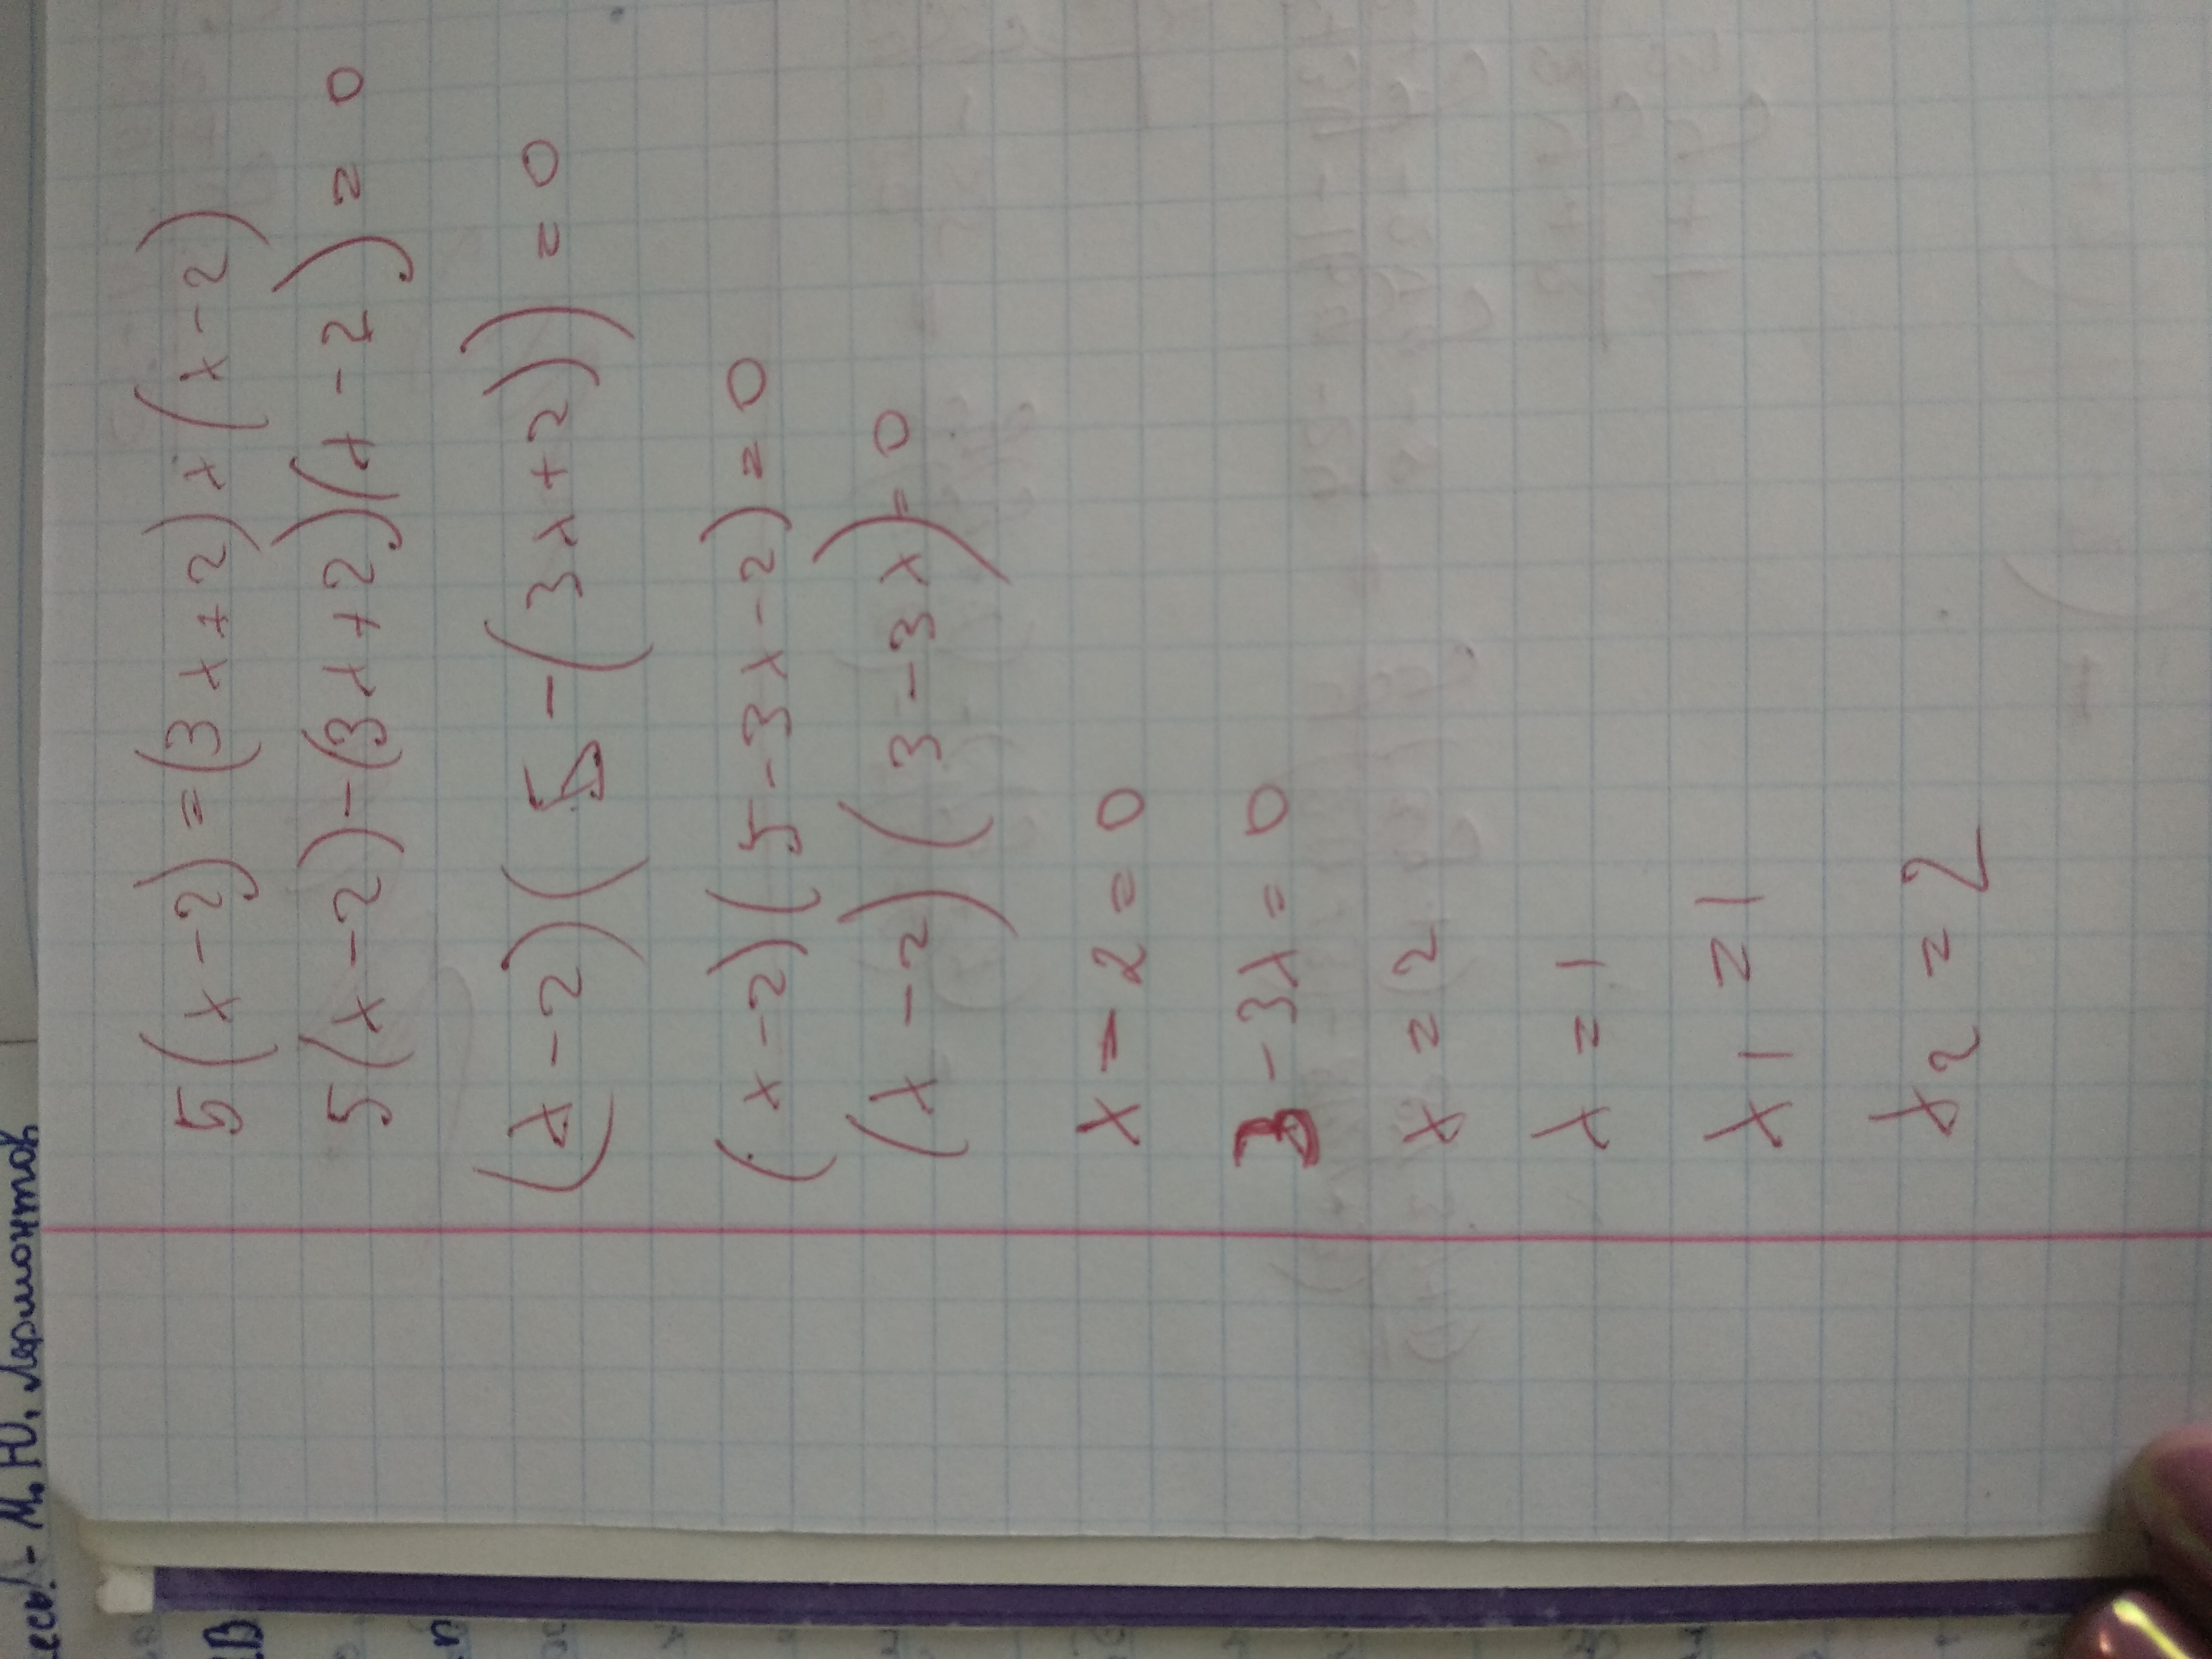 5(x-2)=(3x+2)x(x-2)
5(x-2)-(3x+2)(x-2)=0
(x-2)(5-(3x+2))=0
(x-2)(5-3x-2)=0
(x-2)(3-3x)=0
x-2=0
3-3x=0
x=2
x=1
x1=1
x2=2
М. Ю. Лермонтов